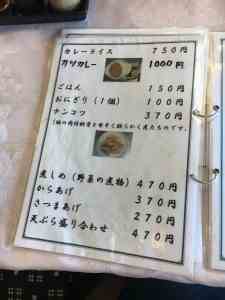 カレーライス 750円
カツカレー 1000円
ごはん 150円
おにぎり(1個) 100円
ナンコツ 370円
煮しめ(野菜の煮物) 470円
からあげ 370円
さつまあげ 270円
天ぷら盛り合わせ 470円